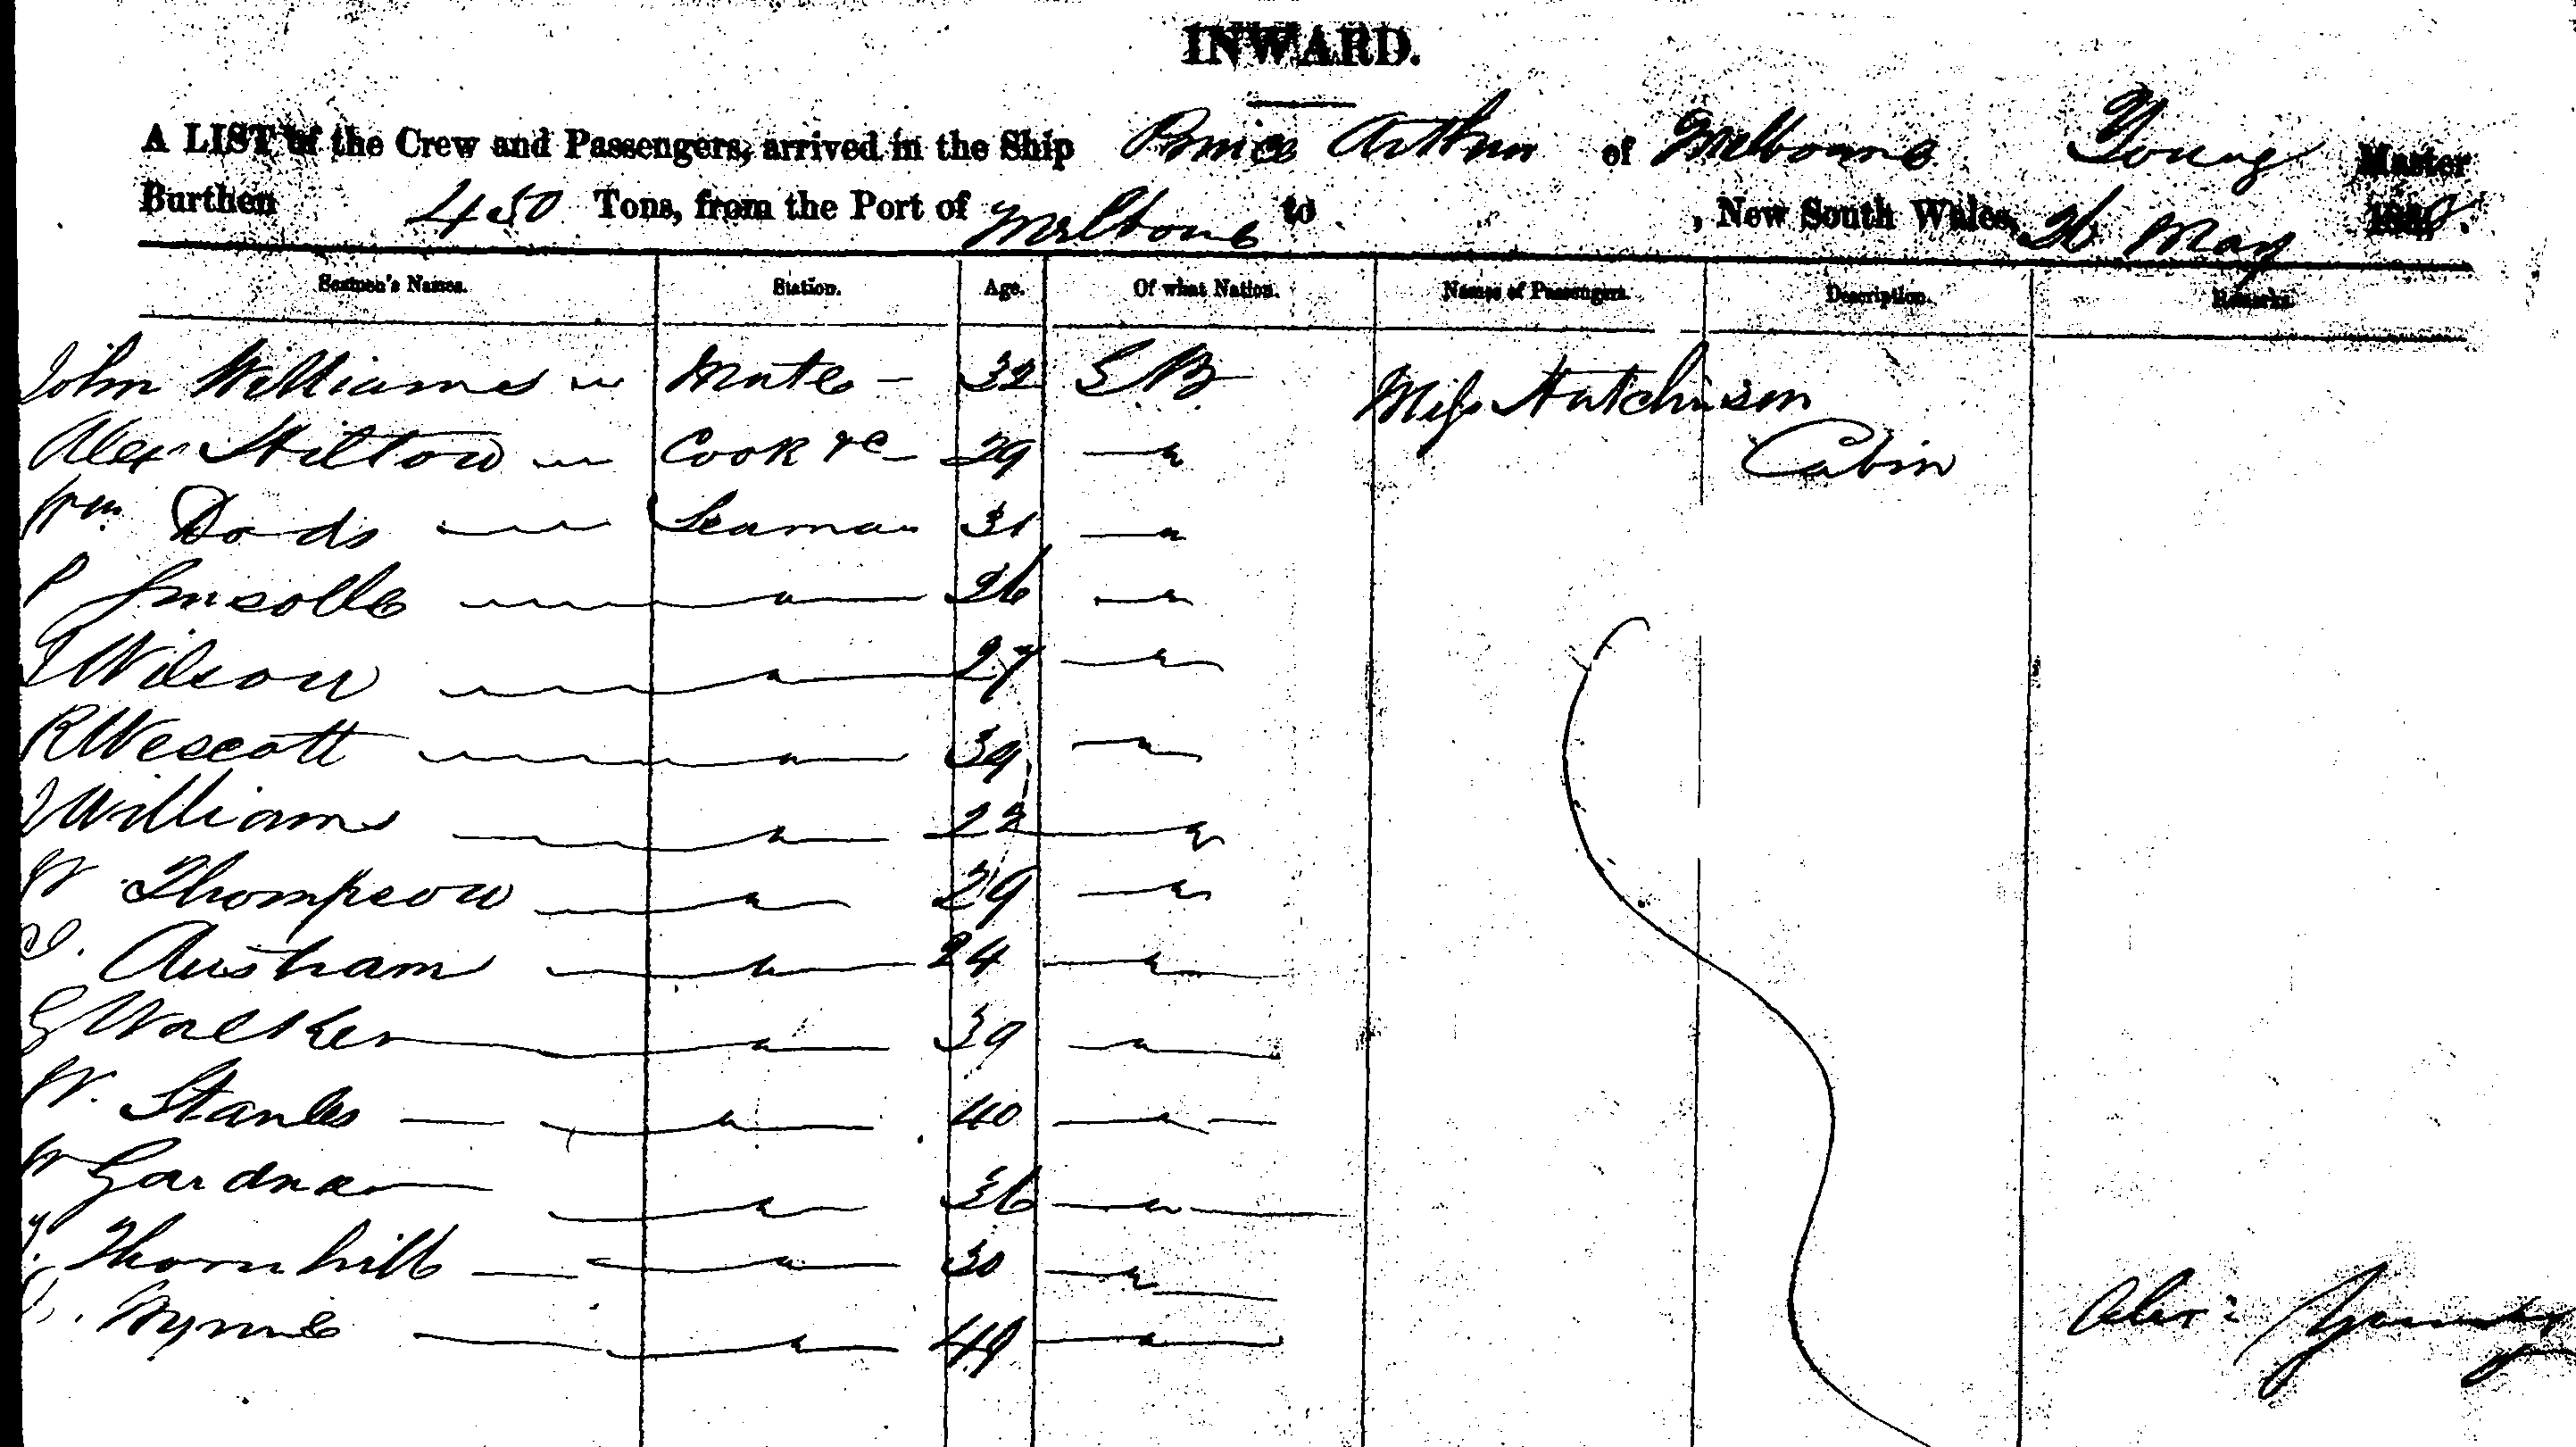 INWARD.
A LIST of the Crew and Passengers, arrived in the Ship Prince Arthur of Melbourne Young Master
Burthen 450 Tons, from the Port of Melbourne to , New South Wales, 26 May
Seamen's Names. Station. Age. Of what Nation. Names of Passengers. Description. Remarks.
John Williams " Mate - 32 G B Miss Hutchinson
Alex Hilton " Cook &c - 29 " Cabin
Wm Dods " Seaman 31 "
P " " 26 "
Wilson " " 27 "
R Wescott " " 39 "
J Williams " 22 "
W Thompson " 29 "
Austham " 24 "
G Walker " 39 "
W. Stanles " 40 "
W Gardner " 36 "
Thornhill " 30 "
Wynne " 49 "
Alexr Young